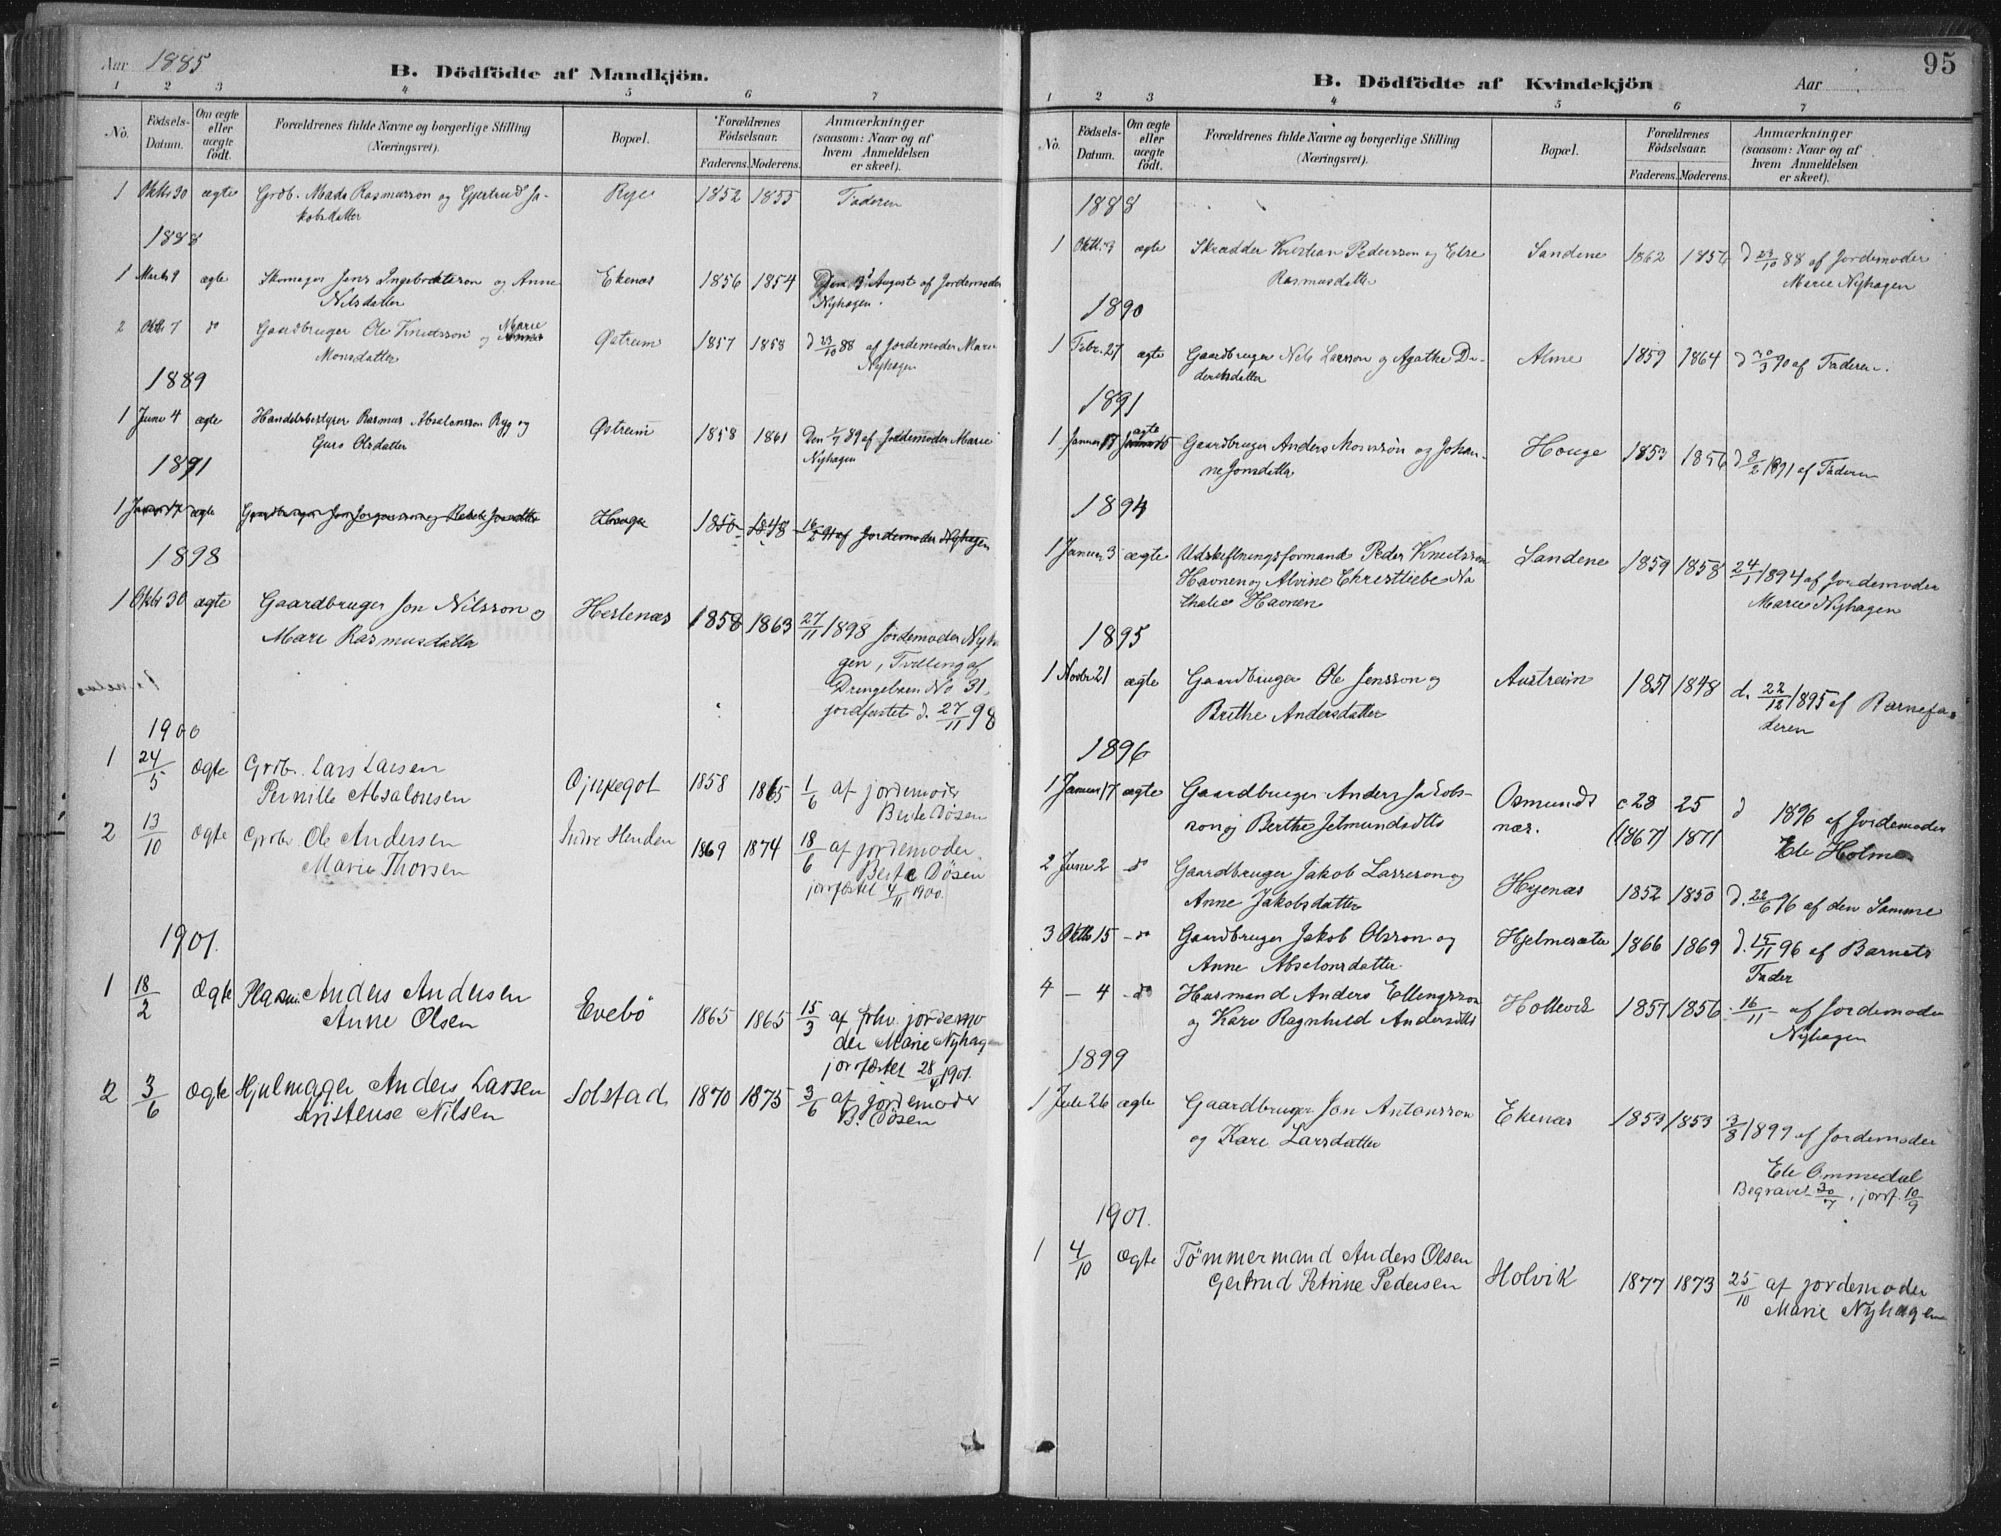 Aar 1885
B. Dödfödte af Mandkjön.
1 2 3 4 5 6 7
No.
Födsels-
Datum.
Om ægte
eller
uægte
födt.
Forældrenes fulde Navne og borgerlige Stilling
(Næringsvei).
Bopæl.
Forældrenes
Födselsaar.
Faderens. Moderens.
Anmærkninger
(saasom: Naar og af
hvem Anmeldelsen
er skeet).
1 Oktbr 30 ægte Grdb. Mads Rasmusson og Gjertrud Ja- Ryg 1852 1855 Faderen
kobsdatter
1888
1 Marts 9 ægte Skomager Jens Ingebrektsson og Anne Ekenæs 1856 1854 August af Jordemoder
Nilsdatter Nyhagen.
2 Oktbr 7 do Gaardbruger Ole Knutsson og Marie Østreim 1857 1858 d 23/10 88 af Jordemoder Marie
Monsdatter Nyhagen
1889
1 Juni 4 ægte Handelsbestyrer Rasmus Absalonsson Ryg og Østreim 1858 1861 Den 1/7 89 af Jordemoder Marie
Guro Olsdatter Nyhagen
1891
1 Januar 17 ægte Gaardbruger Jon Houge 1850 1848 16/2 91 af Jordemoder Nyhagen
1898
1 Oktbr 30 ægte Gaardbruger Jon Nilsson o Hestenæs 1858 1863 27/11 1898 Jordemoder Nyha
Mari Rasmusdatter gen, Tvilling af
Drengebarn No 31,
jordfæstet d. 27/11 98
1900
1 24/5 Ægte Grdb. Lars Larsen Gjuxegot 1858 1865 1/6 af jordemoder
Pernille Absalonsen Berte Bøsen
2 13/10 Ægte Grdb. Ole Andersen Indre Henden 1869 1874 18/6 af jordemoder
Marie Thorsen Berte Bøsen
jorfæstet 4/11 1900.
1901.
1 18/2 Ægte Pladsm. Anders Andersen Evebö 1865 1865 15/3 af frhv. jordemo
Anne Olsen der Marie Nyhagen
jorfæstet 28/4 1901.
2 3/6 Ægte Hjulmager Anders Larsen Solstad 1870 1875 3/6 af jordemoder
Kristense Nilsen B. Bøsen
95
B. Dödfödte af Kvindekjön
Aar
1 2 3 4 5 6 7
No.
Födsels-
Datum.
Om ægte
eller
uægte
födt.
Forældrenes fulde Navne og borgerlige Stilling
(Næringsvei).
Bopæl.
Forældrenes
Födselsaar.
Faderens. Moderens.
Anmærkninger
(saasom: Naar og af
hvem Anmeldelsen
er skeet).
1888
1 Oktb. 9 ægte Skrædder Kristian Pedersson og Else Sandene 1862 1856 d 23/10 88 af Jordemoder
Rasmusdatter Marie Nyhagen
1890
1 Febr. 27 ægte Gaardbruger Nils Larsson og Agathe Di- Alme 1859 1864 d 30/3 90 af Faderen.
deriksdatter
1891
1 Januar 17 ægte Gaardbruger Anders Monsson og Johan- Houge 1853 1856 d 8/2 1891 af Faderen
ne Jonsdatter
1894
1 Januar 3 ægte Udskiftningsformand Peder Knutsson Sandene 1859 1858 24/1 1894 af Jordemoder
Havnen og Alvine Christliebe Na Marie Nyhagen
thalie Havnen
1895
1 Novbr 21 ægte Gaardbruger Ole Jensson og Austreim 1851 1848 d. 22/12 1895 af Barnefa-
Brithe Andersdatter deren
1896
1 Januar 17 ægte Gaardbruger Anders Jakobs- Osmunds c 28 25 d 1896 af Jordemoder
son og Berthe Jetmundsdtts næs. (1867) 1871 Ele Holme
2 Juni 2 do Gaardbruger Jakob Larsson og Hyenæs 1852 1850 d. 22/6 96 af den Samme
Anne Jakobsdatter
3 Oktb 15 do Gaardbruger Jakob Olsson og Hjelmesæter 1866 1869 d. 15/11 96 af Barnets
Anne Absalonsdatter Fader
4 — 4 do Husmand Anders Ellingsson Holvik 1857 1856 16/11 — af Jordemoder
og Kari Ragnhild Andersdtts Nyhagen
1899
1 Juli 26 ægte Gaardbruger Jon Antonsson Ekenæs 1853 1853 3/8 1899 af Jordemoder
og Kari Larsdatter Ele Ommedal
Begravet 30/7, jorf. 10/9
1901.
1 4/10 Ægte Tömmermand Anders Olsen Holvik 1877 1873 25/10 af jordemoder
Gertrud Petrine Pedersen Marie Nyhagen